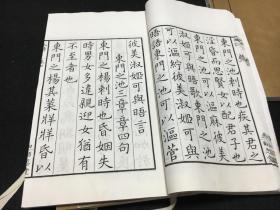 東門之池刺時也疾其君之
淫昏而思賢女以配君子也
東門之池可以漚麻彼美
淑姬可與晤歌東門之池
可以漚紵彼美淑姬可與
晤語東門之池可以漚菅
彼美淑姬可與晤言
東門之池三章章四句
東門之楊刺時也昏姻失
時男女多違親迎女猶有
不至者也
東門之楊其葉牂牂昏以